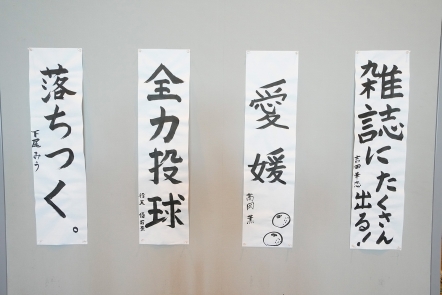 雑誌にたくさん
出る！
愛媛
高岡 薫
全力投球
落ちつく。
下尾みう